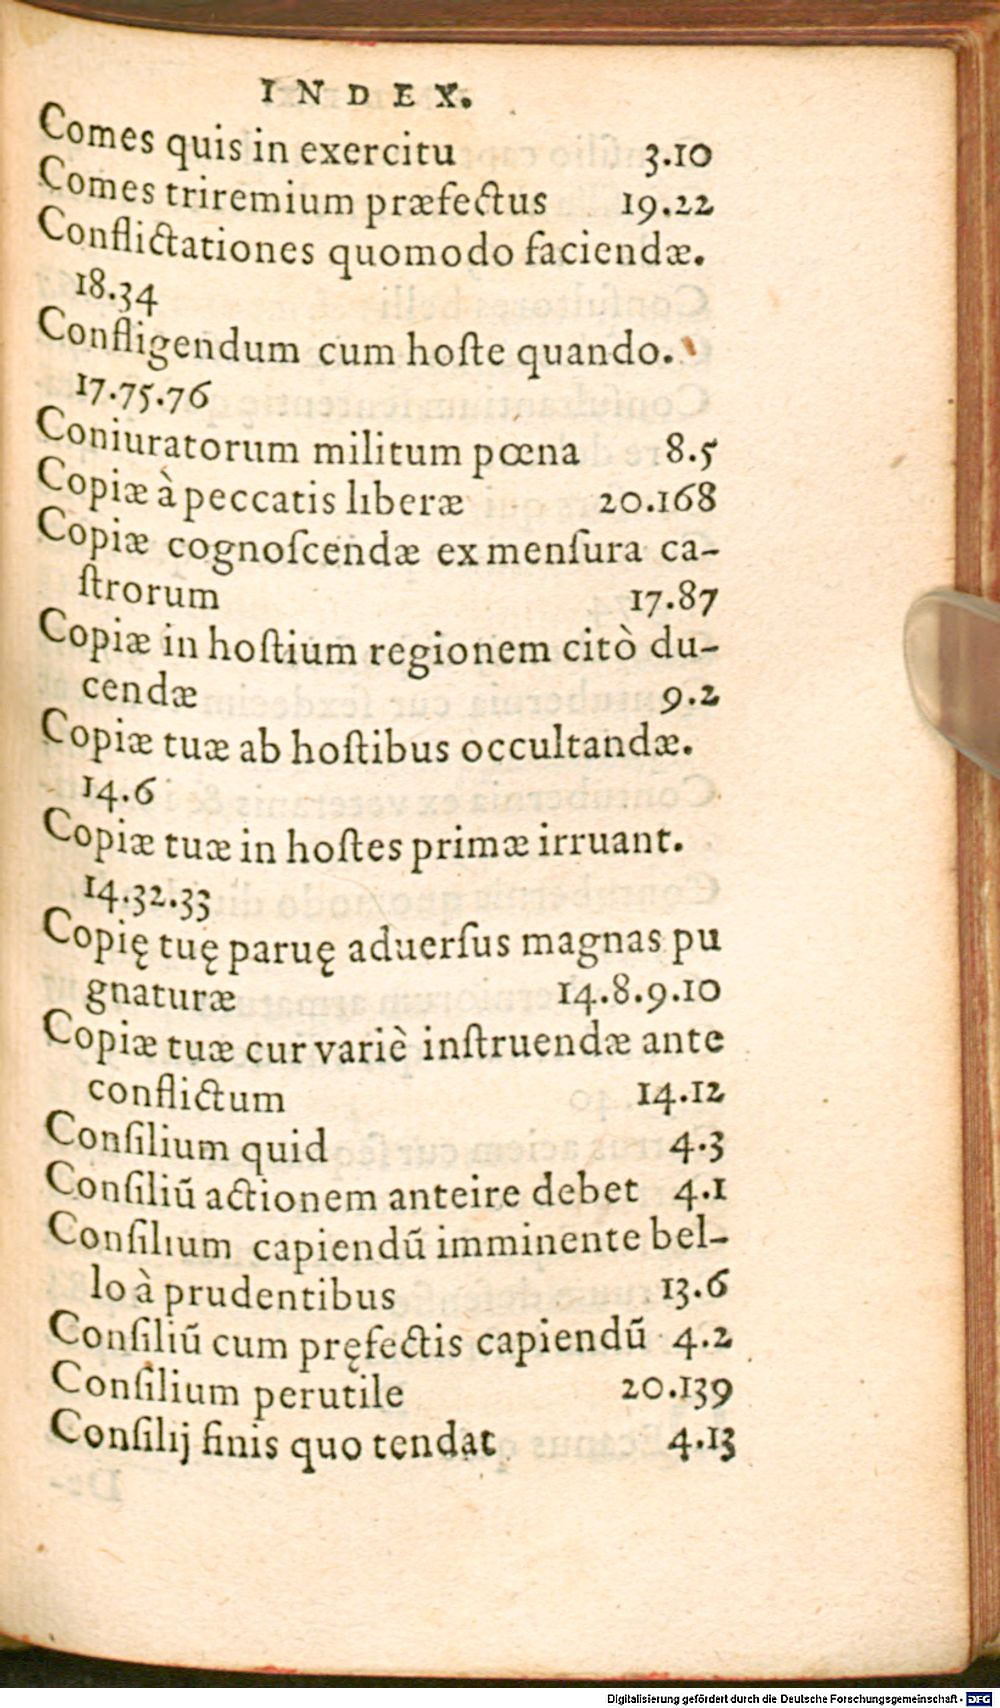 INDEX.
Comes quis in exercitu 3.10
Comes triremium præfectus 19.22
Conflictationes quomodo faciendæ.
18.34
Confligendum cum hoſte quando.
17.75.76
Coniuratorum militum pœna 8.5
Copiæ à peccatis liberæ 20.168
Copiæ cognoſcendæ ex menſura ca-
ſtrorum 17.87
Copiæ in hoſtium regionem citò du-
cendæ 9.2
Copiæ tuæ ab hoſtibus occultandæ.
14.6
Copiæ tuæ in hoſtes primæ irruant.
14.32.33
Copię tuę paruę aduerſus magnas pu
gnaturæ 14.8.9.10
Copiæ tuæ cur variè inſtruendæ ante
conflictum 14.12
Conſilium quid 4.3
Conſiliũ actionem anteire debet 4.1
Conſilium capiendũ imminente bel-
lo à prudentibus 13.6
Conſiliũ cum pręfectis capiendũ 4.2
Conſilium perutile 20.139
Conſilij finis quo tendat 4.13
Digitalisierung gefördert durch die Deutsche Forschungsgemeinschaft - DFG